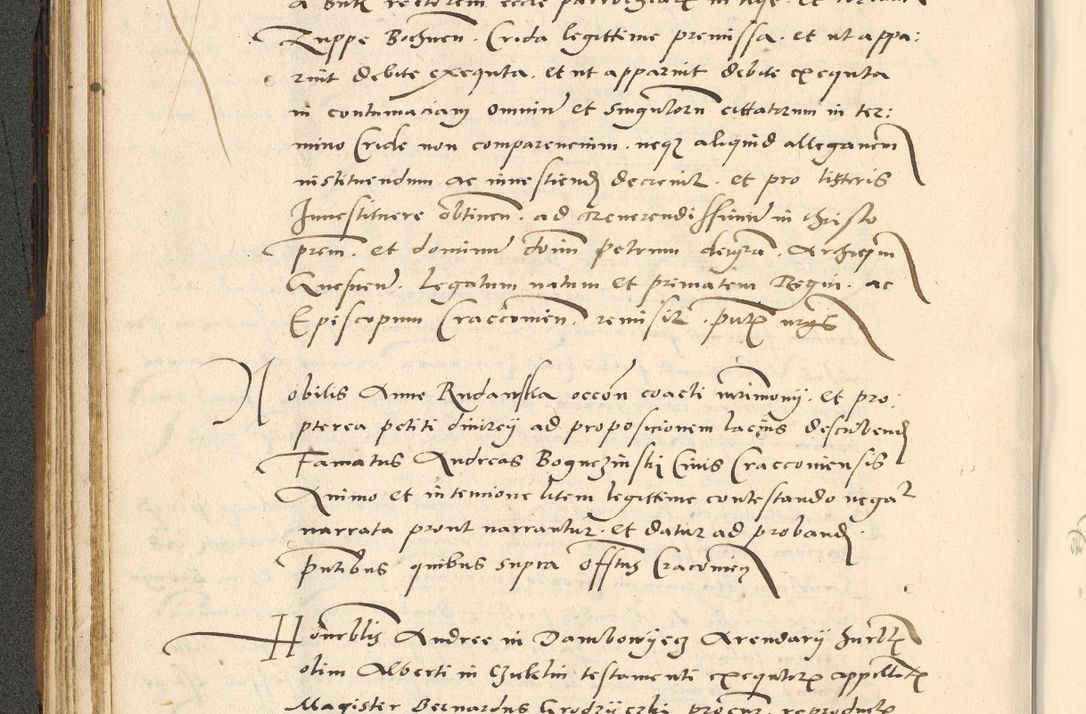 Zuppe Bochnen. Crida legittime premissa. et ut appa:
ruit debite exequta. et ut apparuit debite exequta
in contumaciam omnium et singulorum citatorum in ter:
mino Cride non comparencium. neque aliquid allegancium
instituendum ac investiend decrevit. et pro litteris
Investiture obtinen. ad Reverendissimum in christo
prem. et dominum dom petrum dei gra. Archiepum
Gnesnen. Legatum natum et primatem Regni. ac
Episcopum Cracovien. remisit. pntibus
Nobilis Anne Rudawska occon coacti mrimonii. et pro:
pterea petiti divorcii ad proposicionem lacius describend
Famatus Andreas Boguczinski Civis Cracoviensis
Animo et intencione litem legittime contestando negat
narrata prout narrantur. et datur ad proband
pntibus quibus supra offtus Cracovien
Honorblis Andree in Dambowyecz Arendarii
olim Alberti in testamenti exequtoris
Magister Bernardus Grodzyeczki procur. reproducta